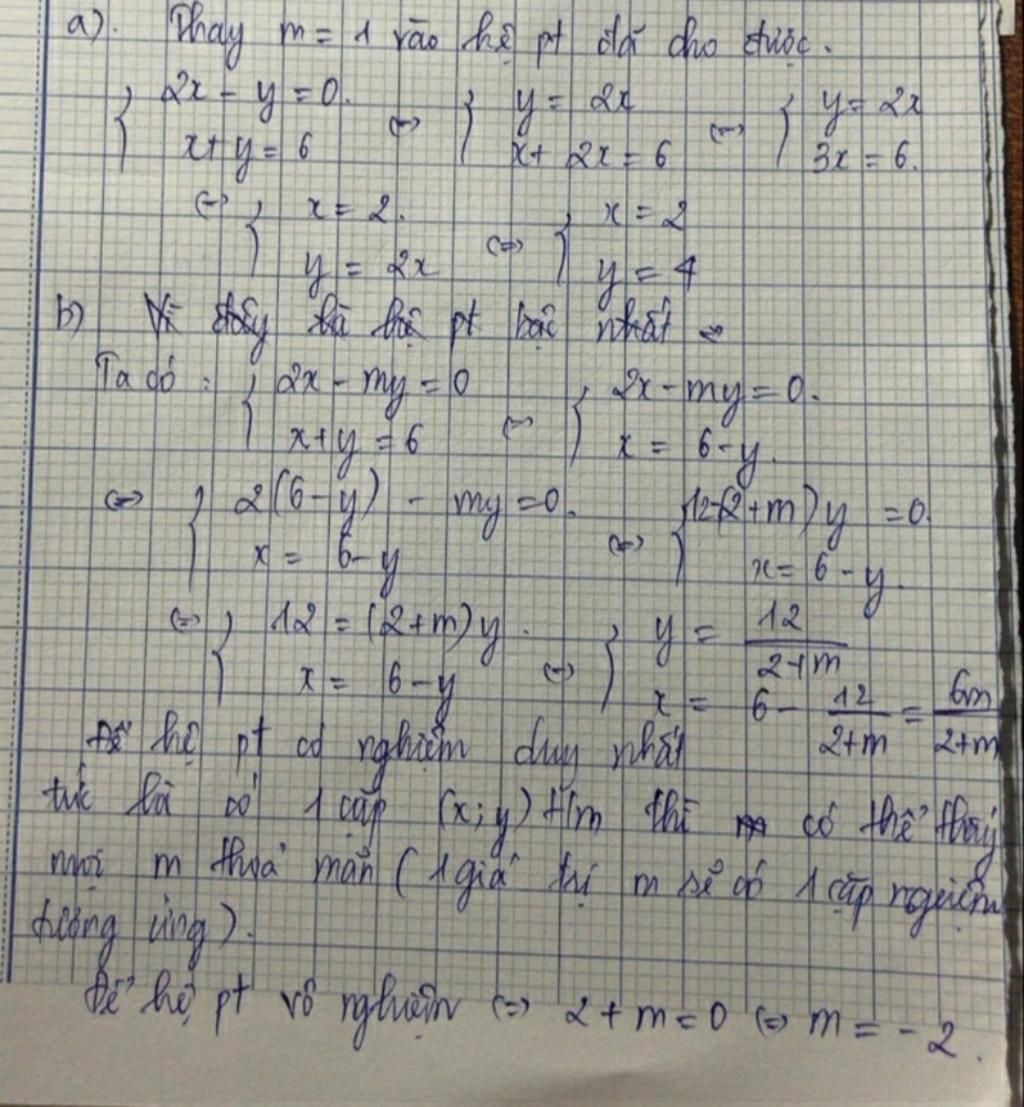 a). Thay m = 1 vào hệ pt đã cho được.
{ 2x - y = 0. (=) { y = 2x (=) { y = 2x
x + y = 6 x + 2x = 6 3x = 6.
(=) { x = 2. (=) { x = 2
y = 2x y = 4
b) Vì đây là hệ pt bậc nhất
Ta có : { 2x - my = 0 (=) { 2x - my = 0.
x + y = 6 x = 6 - y.
(=) { 2(6 - y) - my = 0. (=) { 12-(2+m)y = 0.
x = 6 - y x = 6 - y.
(=) { 12 = (2+m)y. (=) { y = 12/(2+m)
x = 6 - y x = 6 - 12/(2+m) = 6m/(2+m)
Để hệ pt có nghiệm duy nhất
tức là có 1 cặp (x; y) t/m thì có thể thấy
mọi m thoả mãn (1 giá trị m sẽ có 1 cặp nghiệm
tương ứng).
Để hệ pt vô nghiệm (=) 2 + m = 0 (=) m = - 2.